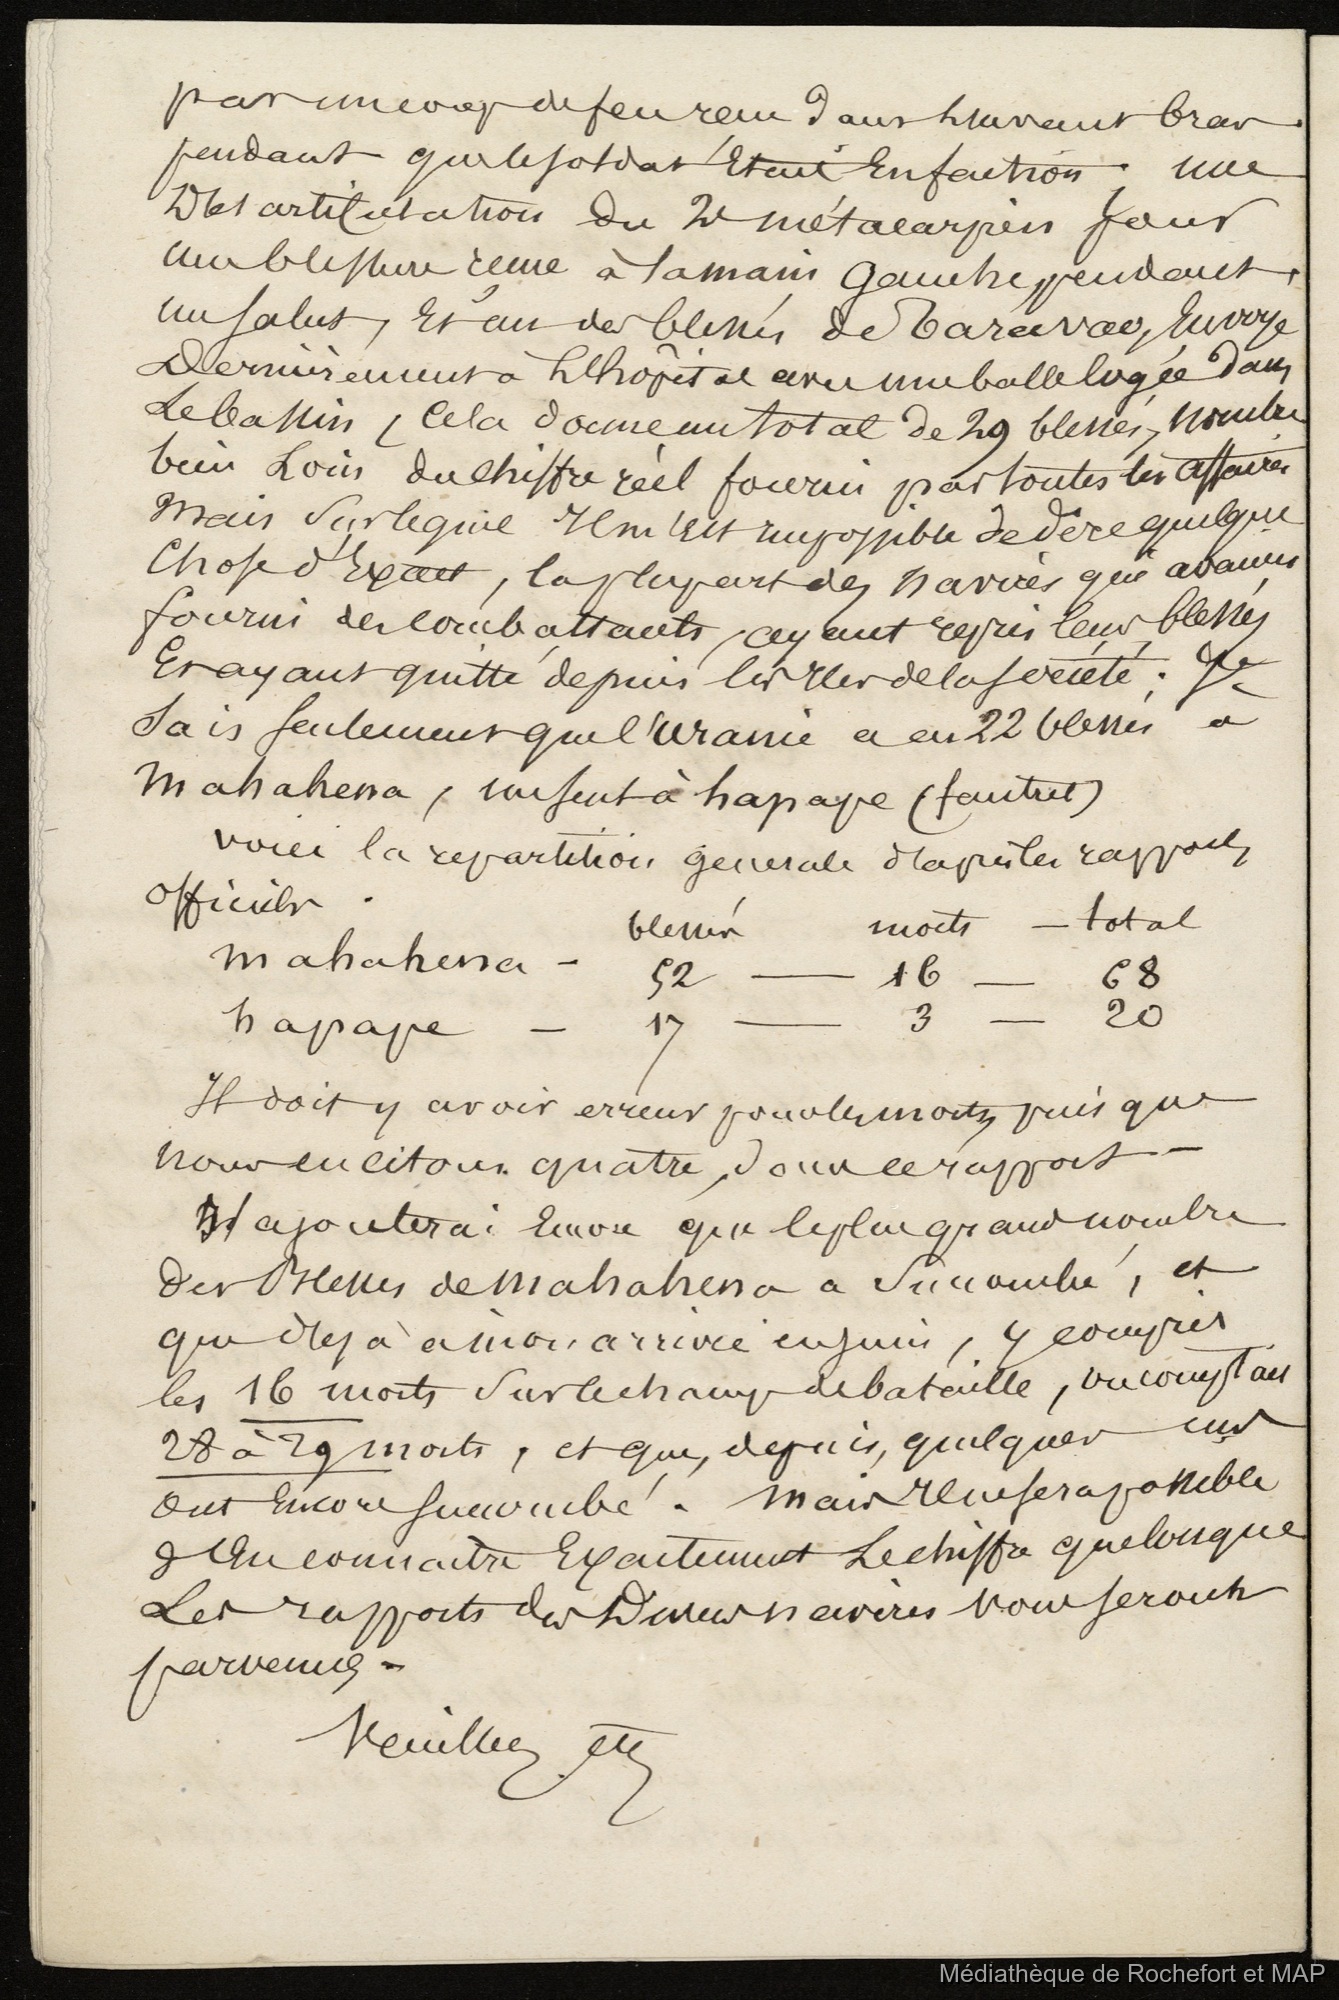 par un coup de feu recu dans l'avant bras
pendant que le soldat Etait En faction, une
Désarticulation du 2e métacarpien pour
une blessure recue à la main gauche, pendant
un salut, Et un des blessés de Taravao, Envoyé
Dernièrement à l'hôpital avec une balle logée dans
Le bassin, Cela donne un total de 29 blessés, nombre
bien Loin du chiffre réel fourni par toutes les affaires
Mais Sur lequel Il m'Est impossible de dire quelque
Chose d'Exact, la plupart des navires qui avaient
fourni des combattants, ayant repris leurs blessés
Et ayant quitté depuis les Iles de la société; Je
Sais seulement que l'Uranie a eu 22 blessés a
Mahahena, un seul à hapape (fautrel)
voici la repartition generale d'après les rapports
officiels.
blessés morts — total
Mahahena - 52 — 16 — 68
hapape — 17 — 3 — 20
Il doit y avoir erreur pour les morts, puis que
nous en citons quatre, dans ce rapport —
J'ajouterai Encore que le plus grand nombre
Des Blessés de Mahahena a Succombé, et
que déjà à mon arrivée en juin, y compris
les 16 morts Sur le champ de bataille, on comptait
28 à 29 morts, et que, depuis, quelques uns
ont Encore succombé. Mais Il ne sera possible
d'En connaitre Exactement Le chiffre que lorsque
Les rapports des Divers navires vous seront
parvenus -
Veuillez etc
Médiathèque de Rochefort et MAP